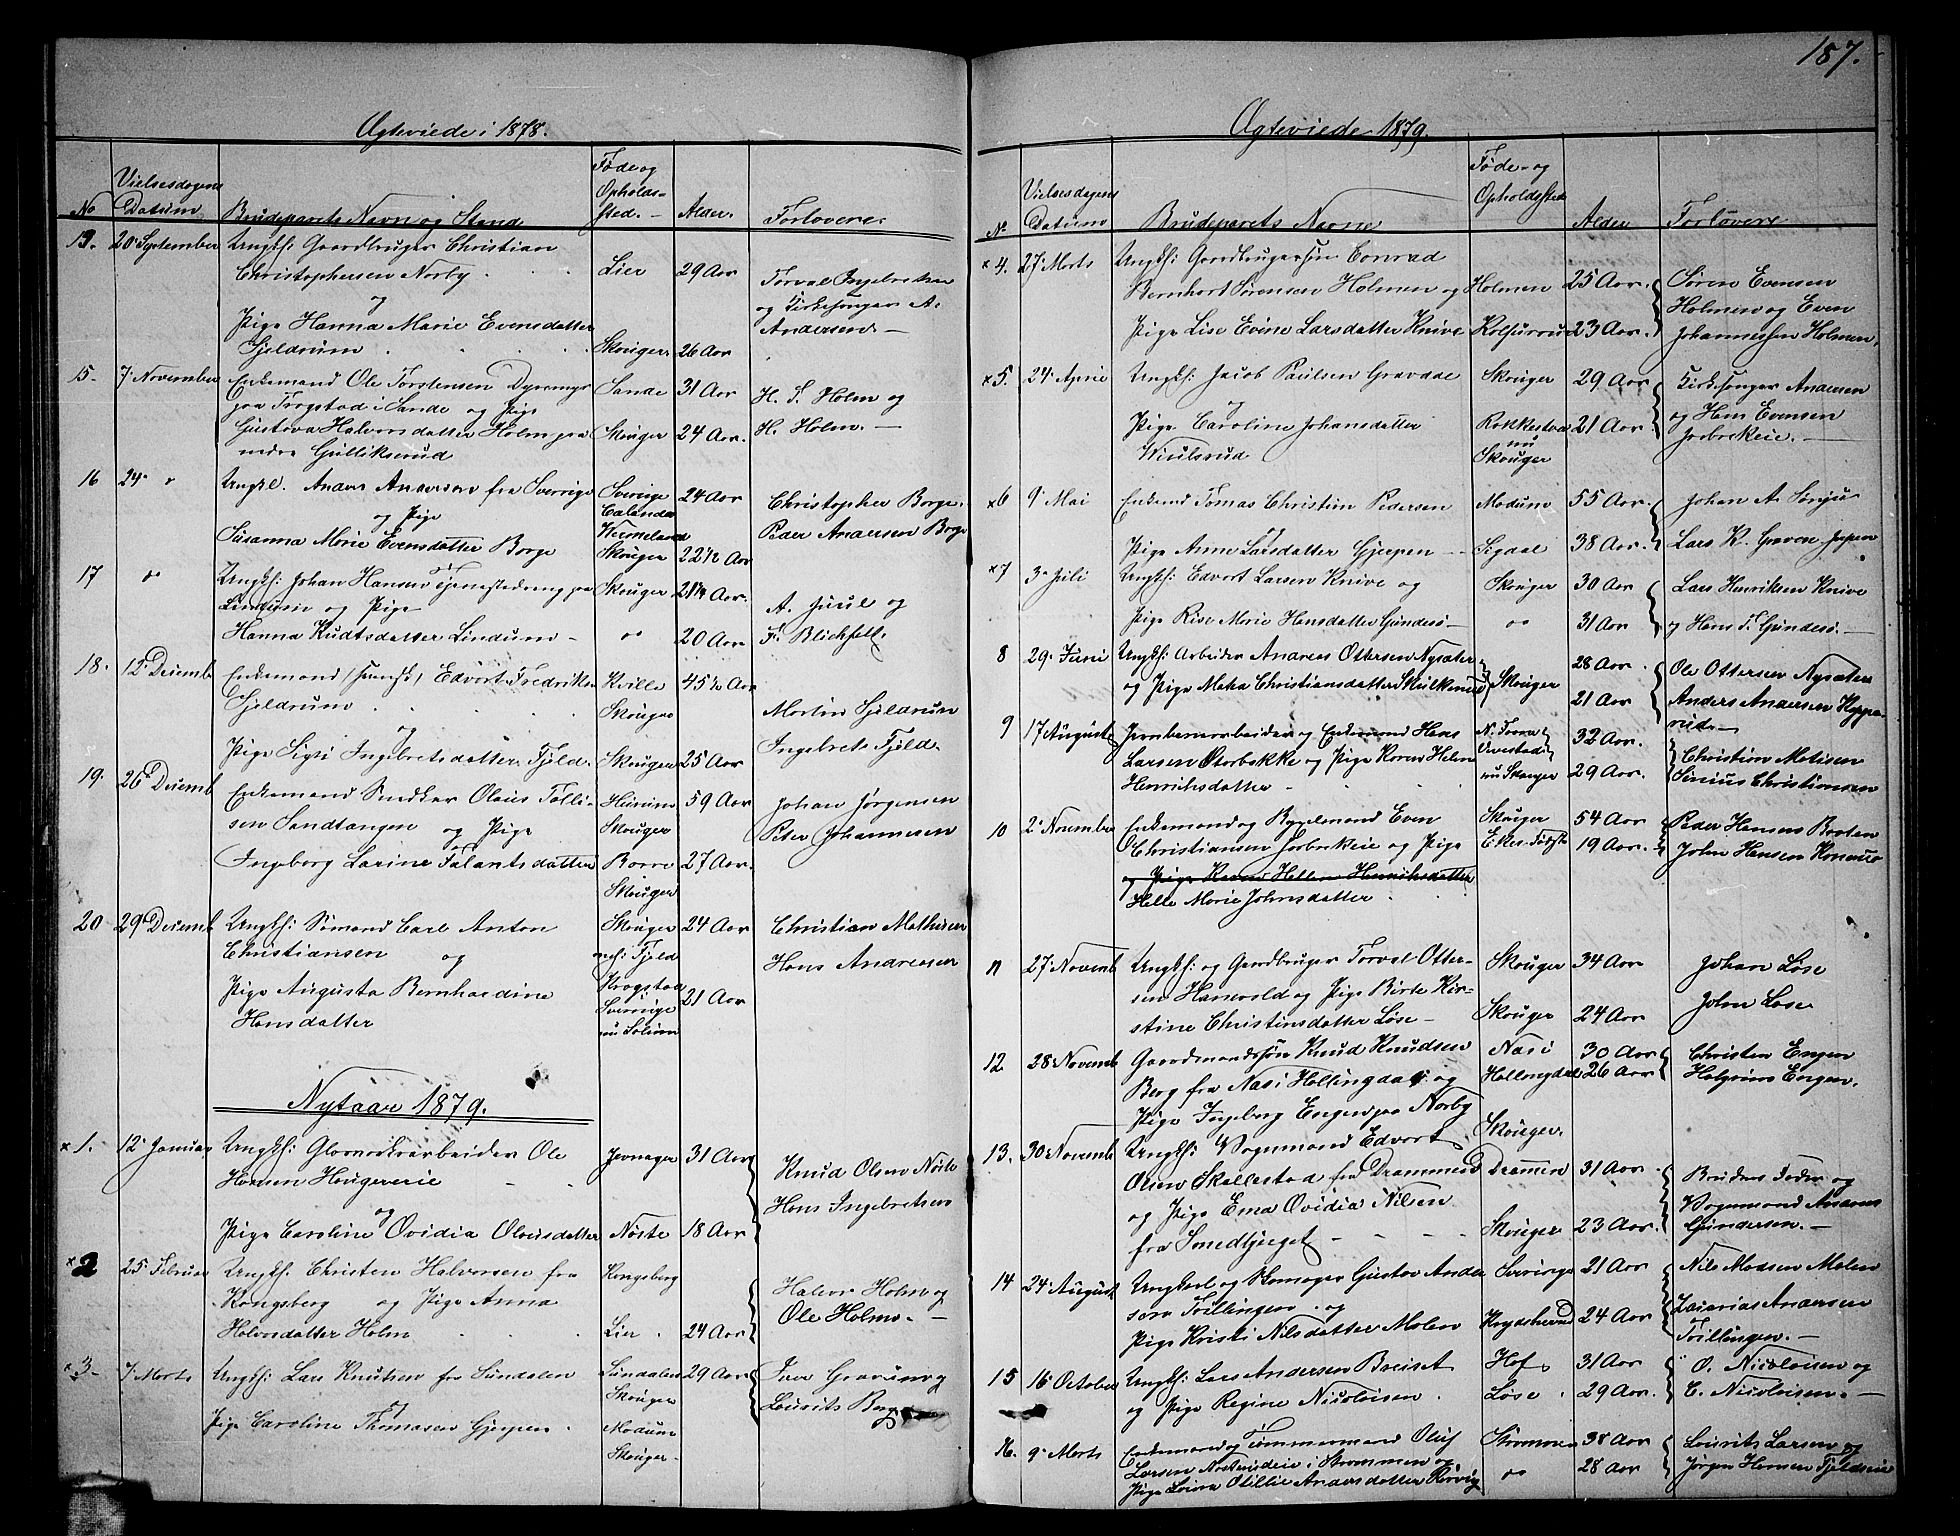 187.
Ægteviede i 1878.
No
Vielsesdagens
Datum
Brudeparets Navn og Stand
Føde og
Opholds-
sted.
Alder.
Forlovere
13. 20 September Ungkf: Gaardbruger Christian
Christophersen Norby Lier 29 Aar
og
Pige Hanna Marie Evensdatter
Gjeldrum Skouger 26 Aar
Torval Ingebretsen
og Kirkesanger A.
Andersen
15. 7 November Enkemand Ole Torstensen Dynnnge
paa Trogstad i Sande og Pige Sande 31 Aar
Gustava Halvorsdatter Holm paa Skouger 24 Aar.
nedre Gulliksrud
H. T. Holm og
H. Holm.
16 24 " Ungkl. Anders Andersen fra Sverrige
og Pige
Susanna Marie Evensdatter Borge
Sverrige 24 Aar
Wermeland
Skouger 22 1/2 Aar
Christopher Borge.
Peder Andersen Borge
17 " Ungkf: Johan Hansen Tjenestedreng paa
Lindum og Pige
Hanna Kudtsdatter Lindum
Skouger 21 1/4 Aar.
" 20 Aar
A. Juul og
F. Blichfelt
18. 12 Desemb Enkemand (svensk) Edvart Fredriksen
Gjeldrum
og
Pige Sigri Ingebretsdatter Fjeld.
Kville 45 1/2 Aar
Skouger
Skouger 25 Aar
Morten Gjeldrum
Ingebret Fjeld
19. 26 Desemb Enkemand Snedker Olaus Tolli-
sen Sandtangen og Pige
Ingeborg Larine Talantsdatter
Hurum 59 Aar
Skouger
Borre 27 Aar.
Skouger
Johan Jørgensen
Peter Johannesen
20 29 Desemb Ungkf: Sømand Carl Anton
Christiansen og
Pige Augusta Bernhardine
Hansdatter
Skouger 24 Aar
Fjeld
Krogstad 21 Aar
Sverrige
nu Solum
Christian Mathisen
Hans Andresen
Nytaar 1879.
x 1. 12 Januar Ungkf: Glasværksarbeider Ole
Hansen Haugereie
og
Pige Caroline Ovidia Olausdatter
Jevnager 31 Aar
Nøste 18 Aar
Knud Olsen Nøste
Hans Ingebretsen
x 2 25 Februar Ungkf. Christen Halvorsen fra
Kongsberg og Pige Anna
Halvorsdatter Holm
Kongsberg
Lier 24 Aar
Halvor Holm og
Ole Holm.
x 3. 7 Marts Ungkf: Lars Knutsen fra Sundalen
og
Pige Caroline Thomasen Gjerpen
Sundalen 29 Aar
Skouger
Modum
Skouger
Iver Gravning
Laurits Borge
Ægteviede 1879.
No
Vielsesdagens
Datum
Brudeparets Navne
Føde- og
Opholdssted
Alder
Forlovere
x 4. 27 Marts Ungkf: Gaardbrugersøn Conrad
Bernhart Sørensen Holmen og Holmen 25 Aar.
Pige Lise Evine Larsdatter Knive Kolsurrud 23 Aar.
Søren Evensen
Holmen og Even
Johannessen Holmen.
x 5. 24 April Ungkf: Jacob Paulsen Gravdal
og
Pige Caroline Johansdatter
Wiulsrud
Skouger 29 Aar
Rokkestad 21 Aar
nu
Skouger
Kirkesanger Andersen
og Hans Evensen
Jarbrekeie.
x 6 9 Mai Enkemd Tomas Christian Pedersen
og
Pige Anne Larsdatter Gjerpen
Modum 55 Aar
Sigdal 38 Aar.
Johan A. Sønju
Lars K. Graven Jerpen
x 7 3 Juli Ungkf: Edvart Larsen Knive og
Pige Rise Marie Hansdatter Gundesø
Skouger 30 Aar
" 31 Aar
Lars Henriksen Knive
og Hans T. Gundesø.
8 29. Juni Ungkf: Arbeider Andreas Ottersen Nysæter
og Pige Maka Christiansdatter Skulkerud
Skouger 28 Aar.
21 Aar
Ole Ottersen Nysæter
Anders Andersen Keppe-
rud
9 17 August Jernbanearbeider og Enkemand Hans
Larsen Storbakke og Pige Karen Helene
Henrichsdatter
nu Skouger
32 Aar.
29 Aar.
Christian Matisen
Sirius Christiansen
10 2 November Enkemand og Bygdemand Even
Christiansen Jarbrekeie og Pige
og Pige Karen Hellene Henrichsdatter
Helle Marie Johnsdatter
Skouger 54 Aar
19 Aar.
Peder Hansen Braten
John Hansen Konerud
11 27 Novemb Ungkf: og Gardbruger Torval Otter-
sen Hanevold og Pige Birte Kir-
stine Christinsdatter Løse
Skouger 34 Aar
Skouger 24 Aar
Johan Løse
John Løse
12 28 Novemb Gaardmandssøn Knud Knudsen
Berg fra Næsi Hallingdal og
Pige Ingeborg Engen paa Norby
Næsi 30 Aar
Hallengdal 26 Aar
Skouger.
Christen Engen
Halgrims Engen.
13. 30 Novemb Ungkf: Vognmand Edvart
Olsen Skallestad fra Drammen
og Pige Ema Ovidia Nilsen
fra Smedbjerget
Dramen 31 Aar
Skouger 23 Aar.
Brudens Fader og
Vognmand Anders
Gundersen.
14 24 August Ungkarl og Skomager Gustav Ander
sen Tvillingen og
Pige Kristi Nilsdatter Molen
Sverrige 21 Aar
Krydsherred 24 Aar
Nils Madsen Molen
Zacarias Andersen
Tvillingen.
15 16 October Ungkf: Lars Andersen Bæiset
og Pige Regine Nicolaisen
Hof 31 Aar
Løse 29 Aar.
O. Nicolaisen og
C. Nicolaisen.
16. 9 Marts Enkemand og Tømmermand Oluf
Larsen Nøsterudeie i Strømmen og
Pige Laura Otillie Andersdatter Rørvig
Strømmen 38 Aar
" 28 Aar
Lourits Larsen og
Jørgen Hansen Fjeldseie